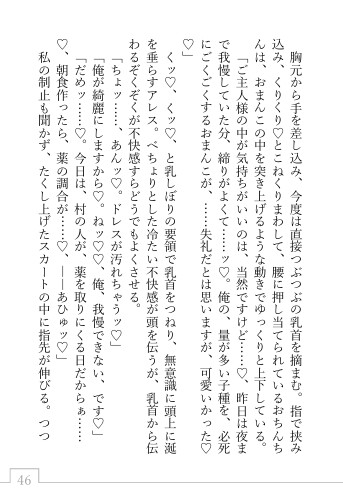 胸元から手を差し込み、今度は直接つぶつぶの乳首を摘まむ。指で挟み
込み、くりくり♡とこねくりまわして、腰に押し当てられているおちんち
んは、おまんこの中を突き上げるような動きでゆっくりと上下している。
「ご主人様の中が気持ちがいいのは、当然ですけど……♡、昨日は夜ま
で我慢していた分、締りがよくて……ッ♡。俺の、量が多い子種を、必死
にごくごくするおまんこが、……失礼だとは思いますが、可愛いかった♡
♡」
くッ♡、くッ♡、と乳しぼりの要領で乳首をつねり、無意識に頭上に涎
を垂らすアレス。べちょりとした冷たい不快感が頭を伝うが、乳首から伝
わるぞくぞくが不快感すらどうでもよくさせる。
「ちょッ……、あんッ♡。ドレスが汚れちゃうッ♡」
「俺が綺麗にしますから♡。ねッ♡♡、俺、我慢できない、です♡」
「だめッ……♡。今日は、村の人が、薬を取りにくる日だからぁ……
♡、朝食作ったら、薬の調合が……♡、――あひゅッ♡」
私の制止も聞かず、たくし上げたスカートの中に指先が伸びる。つつ
46